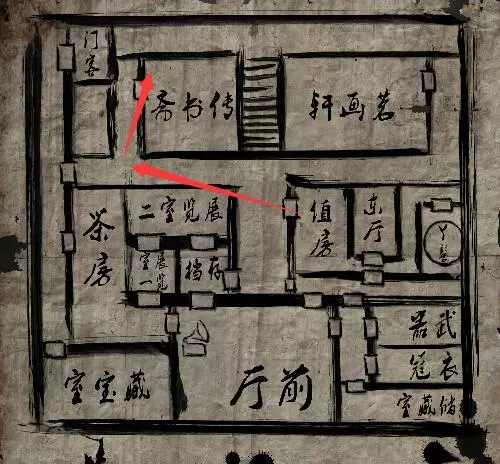 门客
传书斋
茗画轩
茶房
展览室二
值房
东厅
展览
室一
存档
武器
衣冠
储藏室
藏宝室
前厅